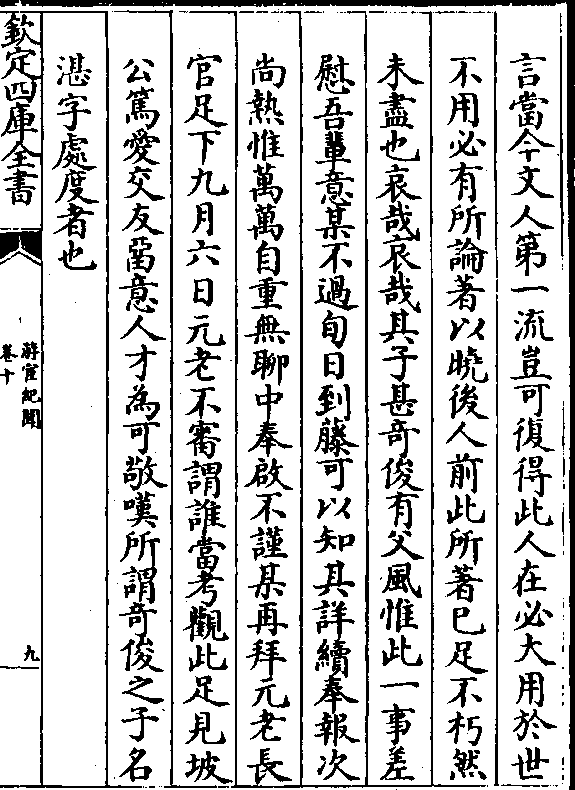 言當今文人第一流豈可復得此人在必大用於世
不用必有所論著以曉後人前此所著已足不朽然
未盡也哀哉哀哉其子甚竒俊有父風惟此一事差
慰吾輩意某不過旬日到藤可以知其詳續奉報次
尚熱惟萬萬自重無聊中奉啟不謹某再拜元老長
官足下九月六日元老不審謂誰當考觀此足見坡
公篤愛交友留意人才為可敬嘆所謂竒俊之子名
湛字處度者也
欽定四庫全書
游宦紀聞
卷十
九